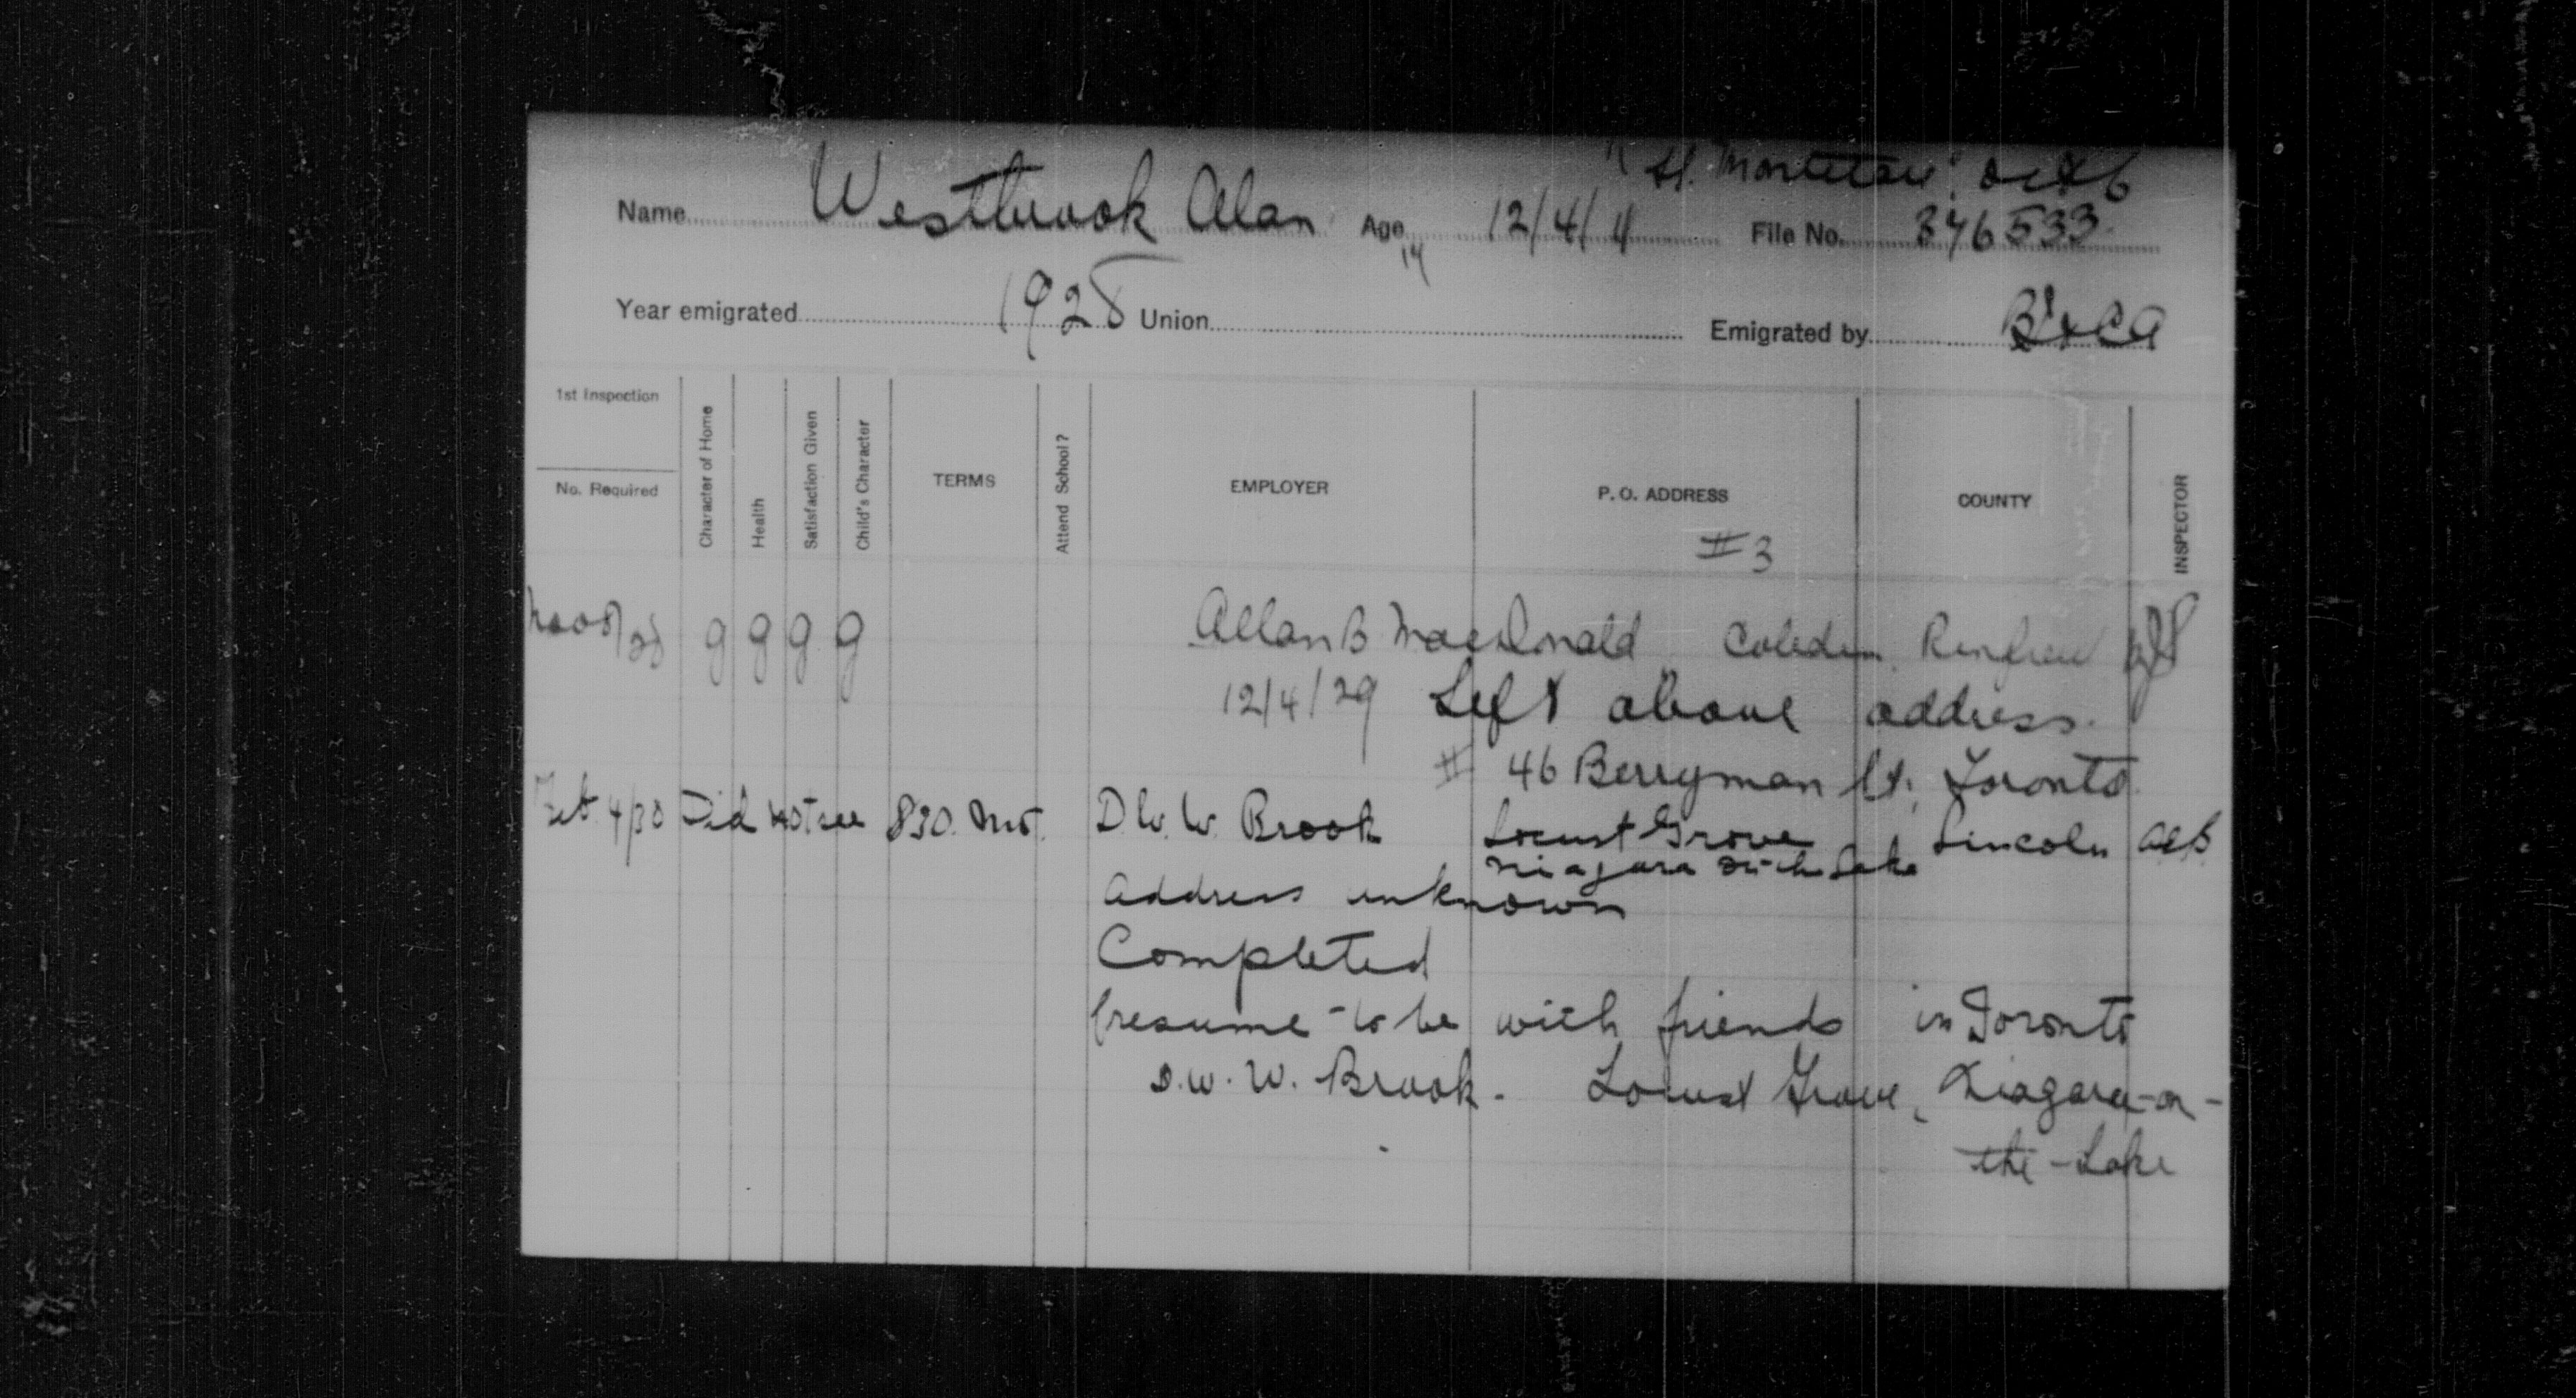 Oct 6
Name Westbrook Alan Age 12/4/11 File No. 376533
14
Year emigrated 1928 Union Emigrated by
1st Inspection
No. Required
Character of Home
Health
Satisfaction Given
Child's Character
TERMS
Attend School?
EMPLOYER
P. O. ADDRESS
COUNTY
INSPECTOR
#3
g g g g Allan B MacDonald Cobden Renfrew
12/4/29 Left above address.
# 46 Berryman St, Toronto
Feb 4/30 Did not see $30. Mo. D. W. W. Brook Locust Grove Lincoln
Niagara on the Lake
Address unknown
Completed
Presume - to be with friends in Toronto
D. W. W. Brook - Locust Grove, Niagara-on-
the-Lake